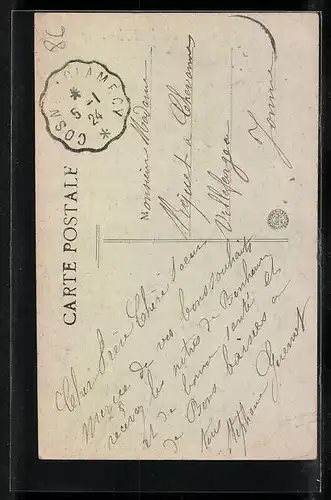 8C
COSNE À CLAMECY
5-1
24
CARTE POSTALE
Monsieur Madame
à
Villefargeau
Yonne
Cher Frère Chère Soeur
Merci de vos bons souhaits
recevez les nôtres de Bonheur
et de bonne santé et
de Bons baisers à
tous